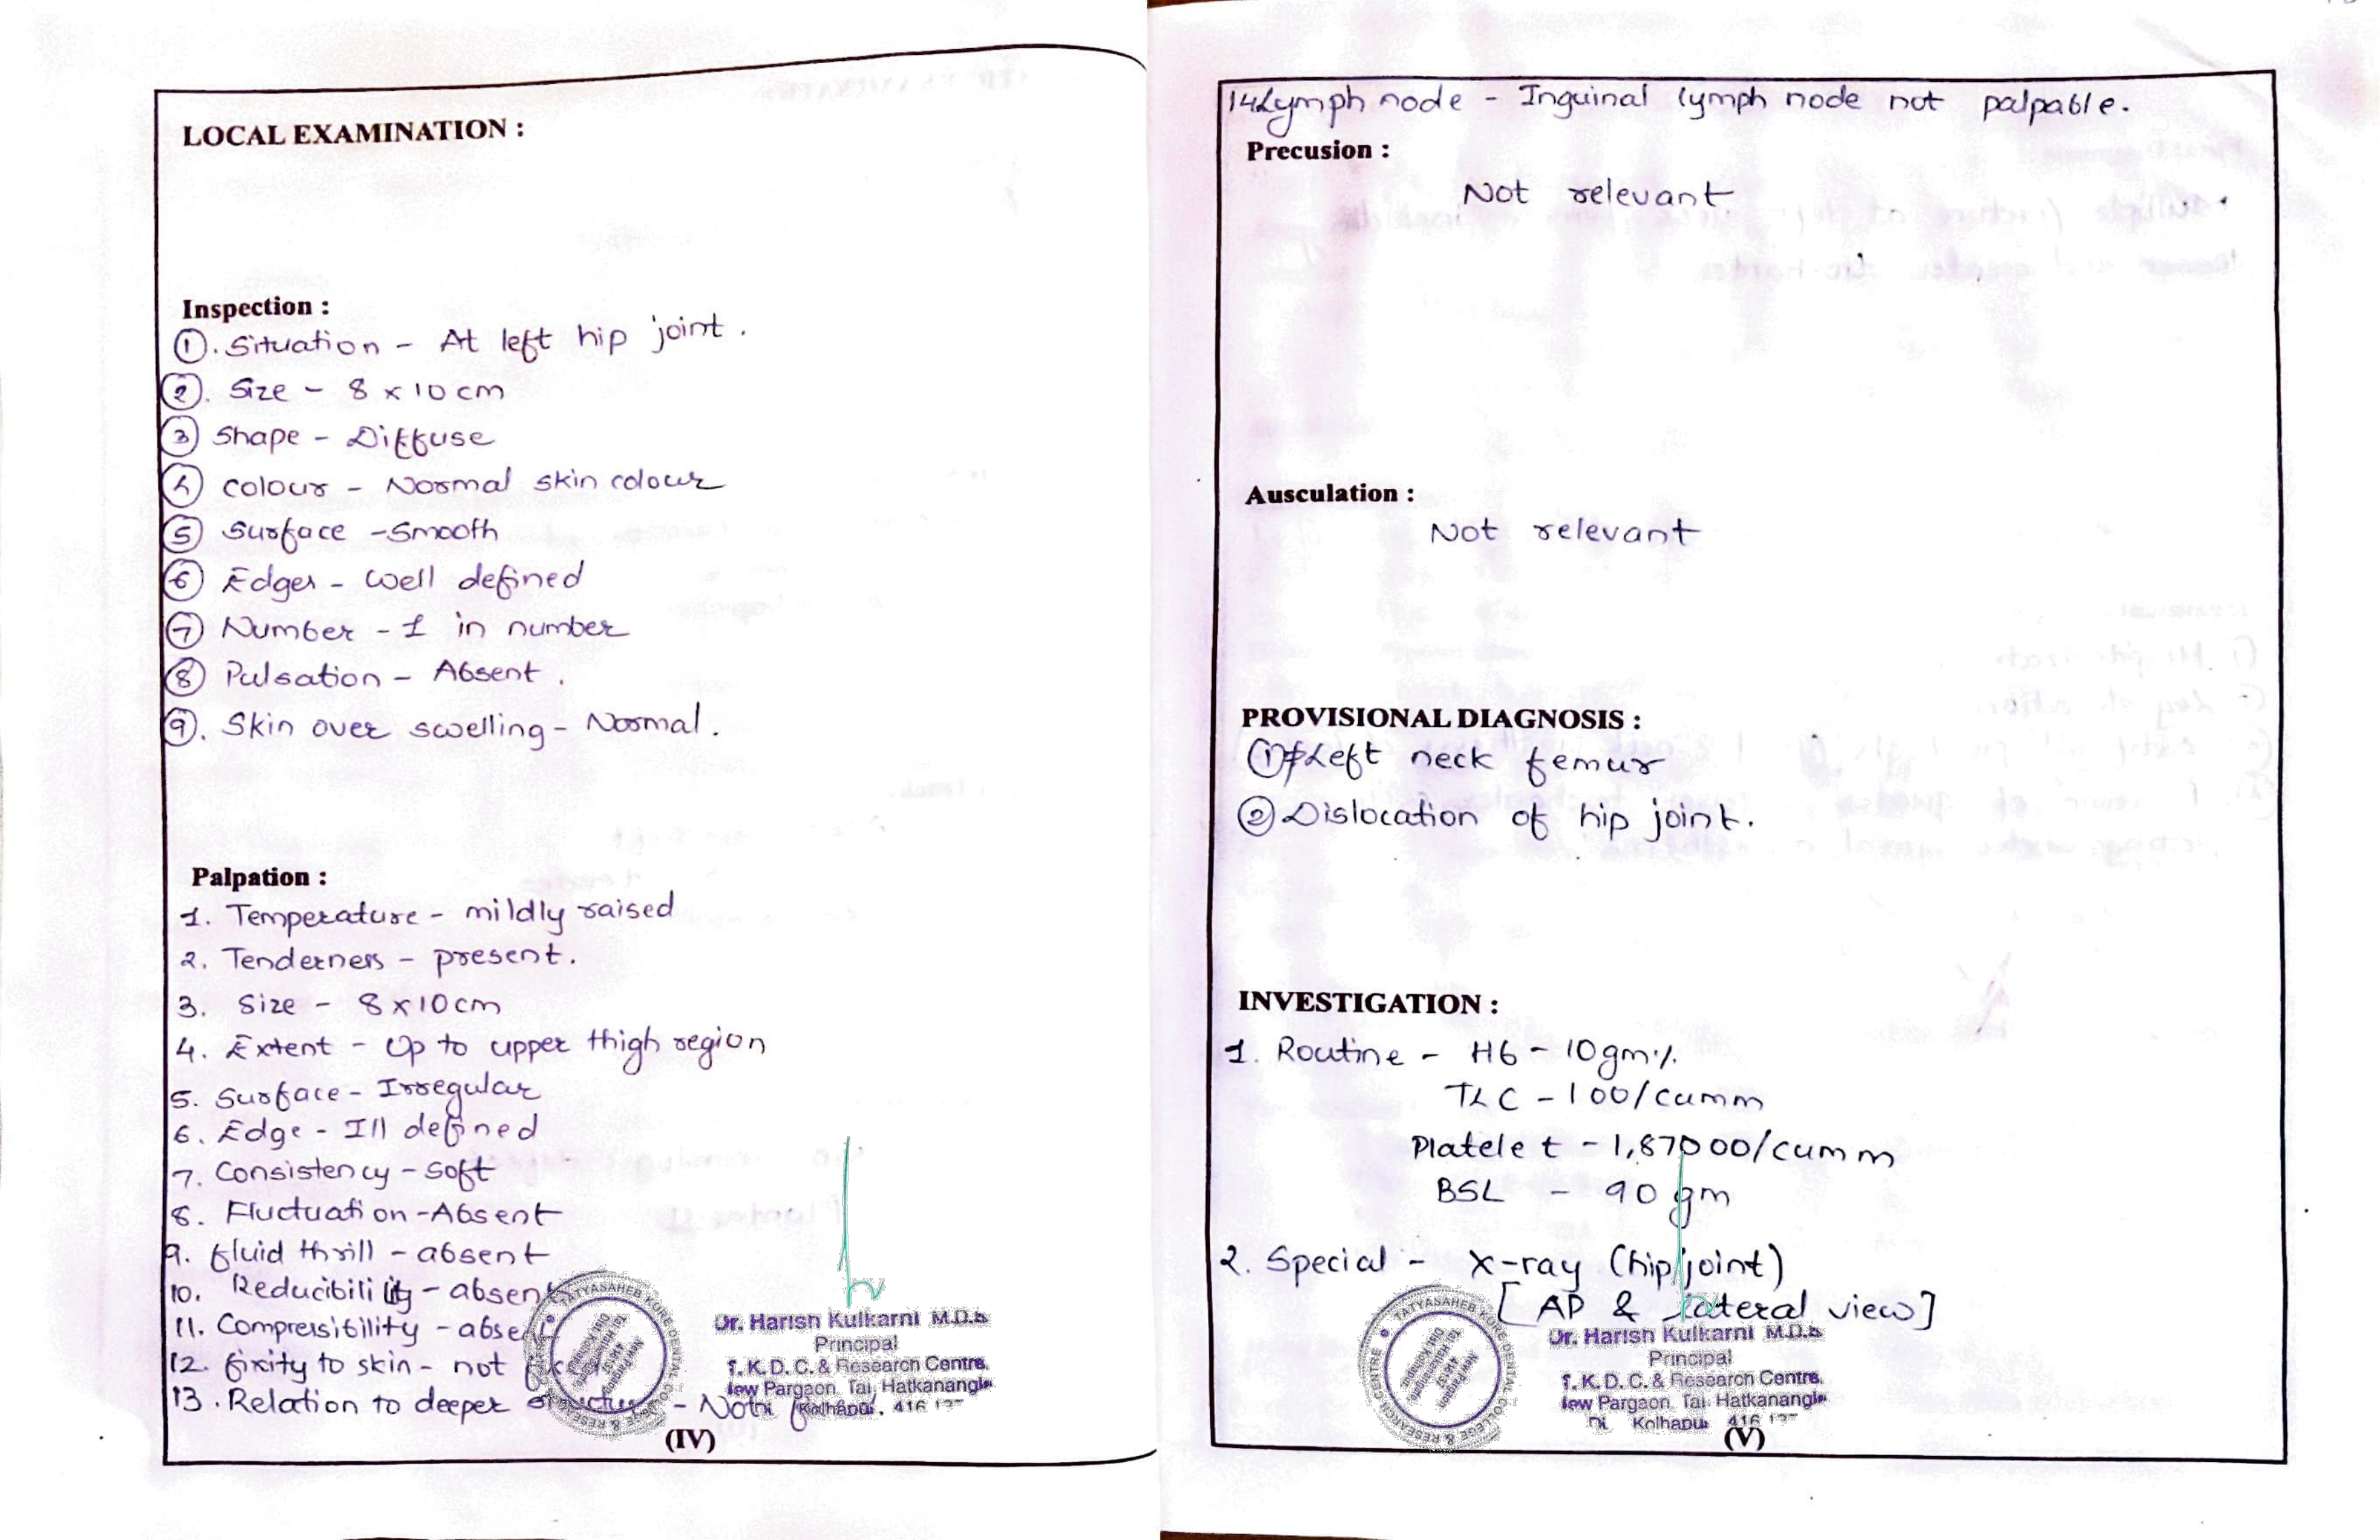 LOCAL EXAMINATION :
Inspection :
①. Situation - At left hip joint.
②. Size - 8 x 10 cm
③ Shape - Diffuse
④ colour - Normal skin colour
⑤ Surface - Smooth
⑥ Edges - Well defined
⑦ Number - 1 in number
⑧ Pulsation - Absent.
⑨. Skin over swelling - Normal.
Palpation :
1. Temperature - mildly raised
2. Tenderness - present.
3. Size - 8 x 10 cm
4. Extent - Up to upper thigh region
5. Surface - Irregular
6. Edge - Ill defined
7. Consistency - soft
8. Fluctuation - Absent
9. fluid thrill - absent
10. Reducibility - absent
11. Compressibility - absent
12. fixity to skin - not
13. Relation to deeper structures - Not
TATYASAHEB KORE DENTAL COLLEGE & RESEARCH CENTRE
Dr. Harish Kulkarni M.D.S
Principal
T.K.D.C. & Research Centre,
New Pargaon, Tal. Hatkanangle
Kolhapur, 416 137
(IV)
14 Lymph node - Inguinal lymph node not palpable.
Precusion :
Not relevant
Ausculation :
Not relevant
PROVISIONAL DIAGNOSIS :
① # Left neck femur
② Dislocation of hip joint.
INVESTIGATION :
1. Routine - Hb - 10 gm%
TLC - 100/cumm
Platelet - 1,87000/cumm
BSL - 90 gm
2. Special - X-ray (hip joint)
[AP & lateral view]
TATYASAHEB KORE DENTAL COLLEGE & RESEARCH CENTRE
Dr. Harish Kulkarni M.D.S
Principal
T.K.D.C. & Research Centre,
New Pargaon, Tal. Hatkanangle
Di. Kolhapur 416 137
(V)